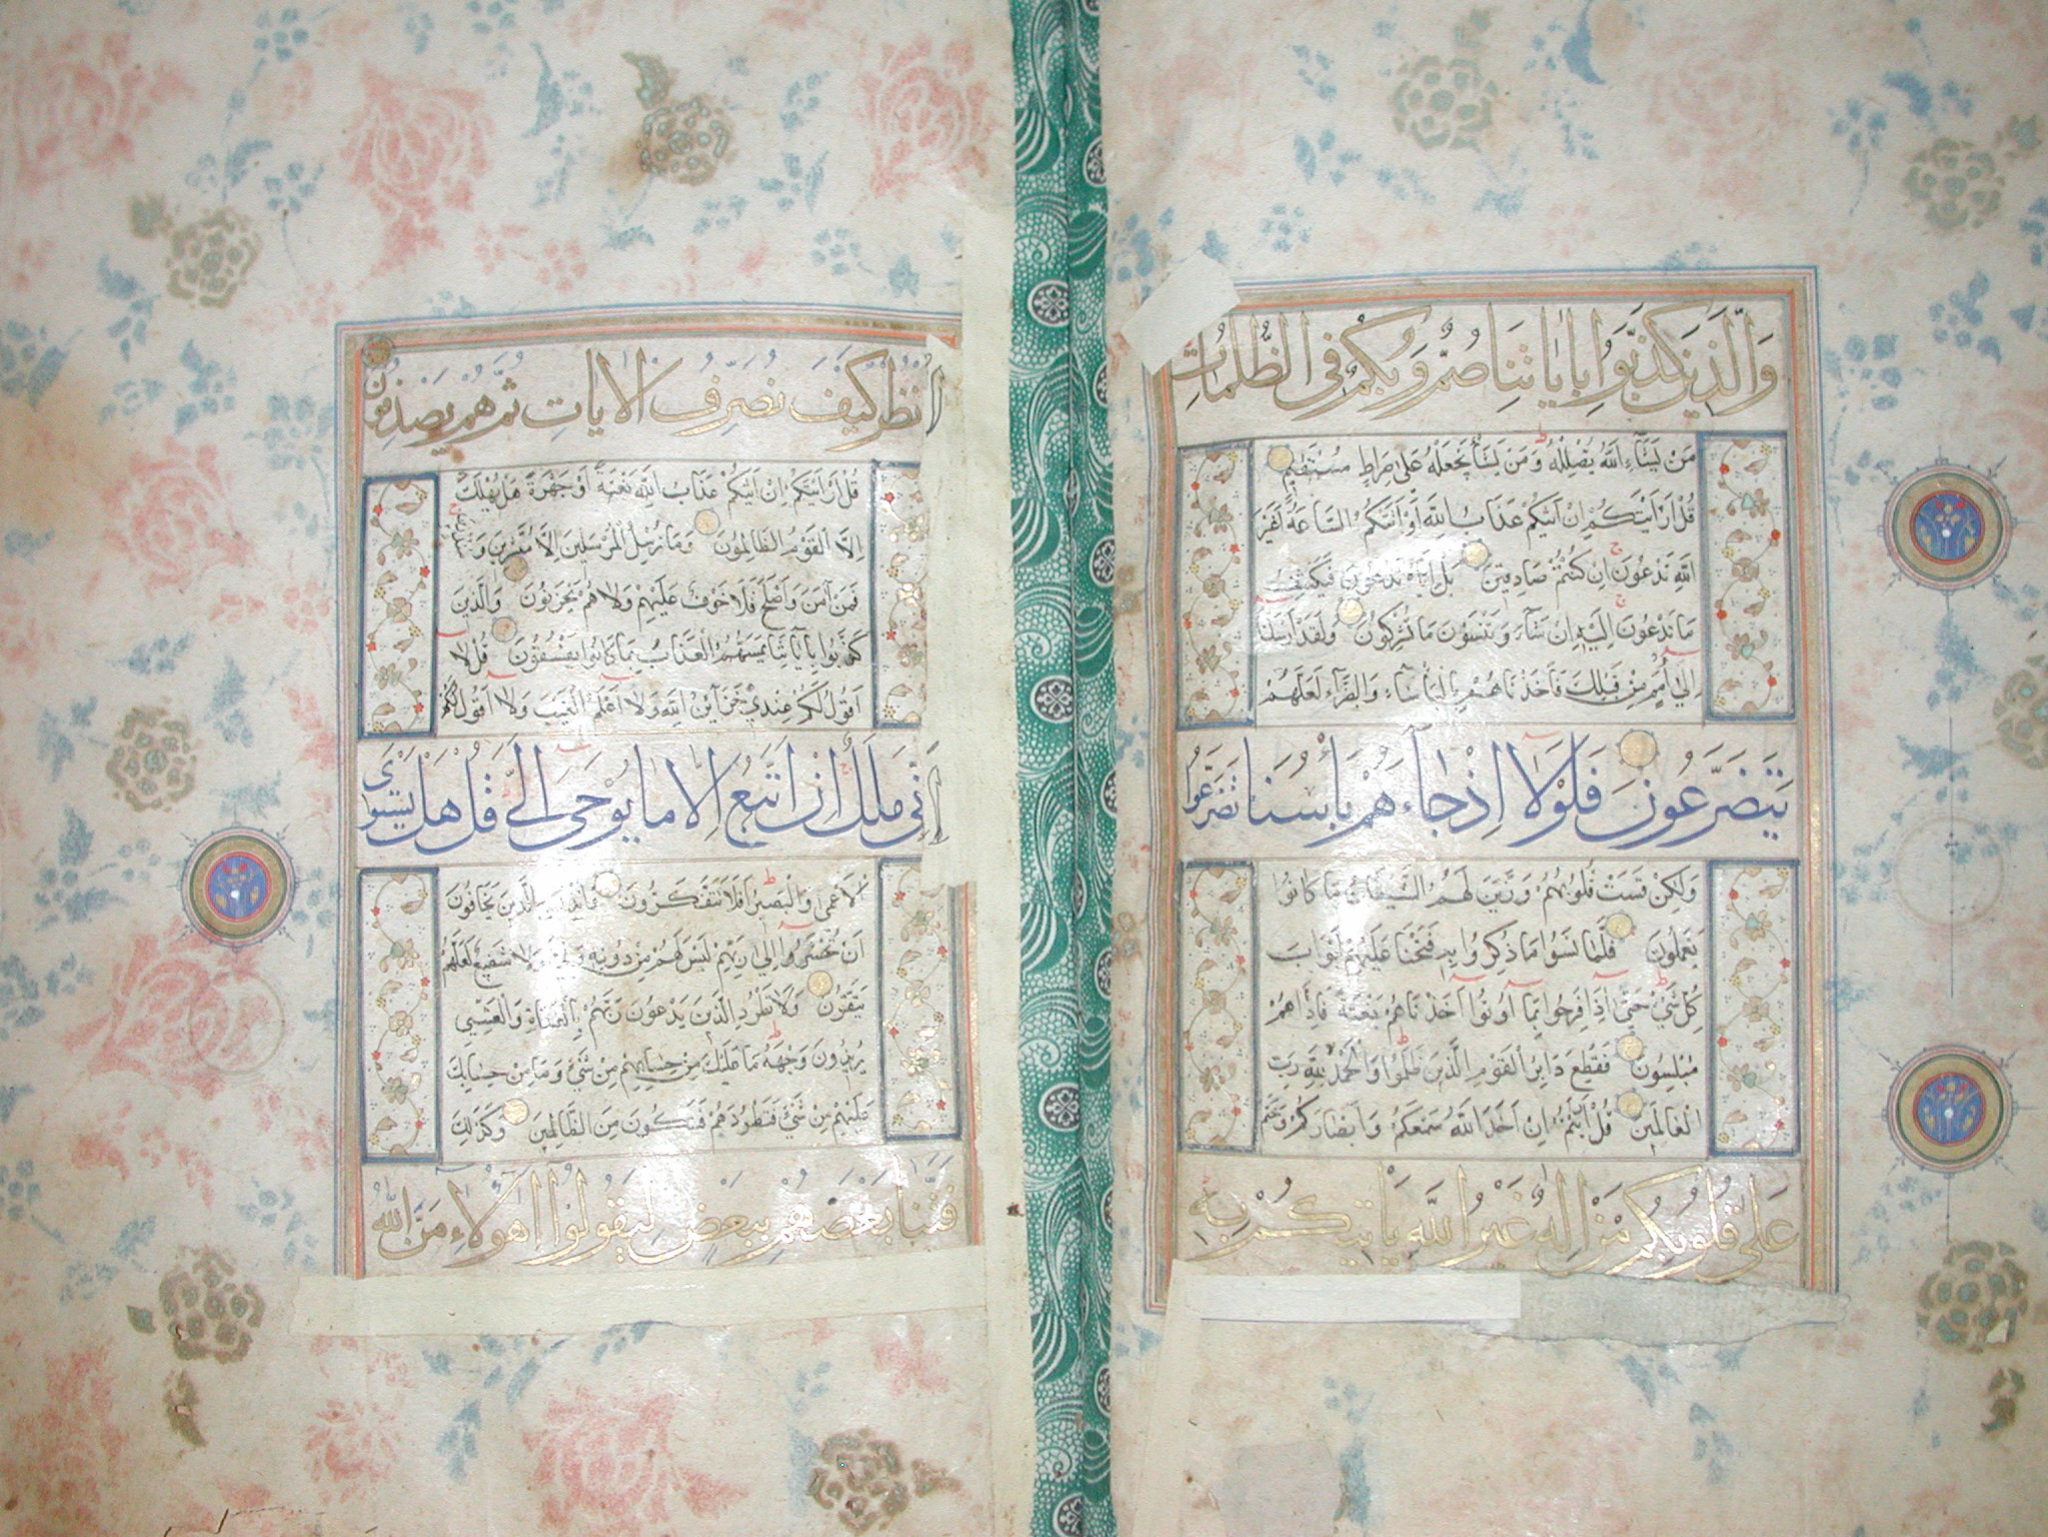 وَالَّذِينَ كَذَّبُوا بِآيَاتِنَا صُمٌّ وَبُكْمٌ فِي الظُّلُمَاتِ
مَنْ يَشَاءِ اللَّهُ يُضْلِلْهُ وَمَنْ يَشَأْ يَجْعَلْهُ عَلَى صِرَاطٍ مُسْتَقِيمٍ
قُلْ أَرَأَيْتَكُمْ إِنْ أَتَيكُمْ عَذَابُ اللَّهِ أَوْ أَتَتْكُمُ السَّاعَةُ أَغَيْرَ
اللَّهِ تَدْعُونَ إِنْ كُنْتُمْ صَادِقِينَ بَلْ إِيَّاهُ تَدْعُونَ فَيَكْشِفُ
مَا تَدْعُونَ إِلَيْهِ إِنْ شَاءَ وَتَنْسَوْنَ مَا تُشْرِكُونَ وَلَقَدْ أَرْسَلْنَا
إِلَى أُمَمٍ مِنْ قَبْلِكَ فَأَخَذْنَاهُمْ بِالْبَأْسَاءِ وَالضَّرَّاءِ لَعَلَّهُمْ
يَتَضَرَّعُونَ فَلَوْلَا إِذْ جَاءَهُمْ بَأْسُنَا تَضَرَّعُوا
وَلَكِنْ قَسَتْ قُلُوبُهُمْ وَزَيَّنَ لَهُمُ الشَّيْطَانُ مَا كَانُوا
يَعْمَلُونَ فَلَمَّا نَسُوا مَا ذُكِّرُوا بِهِ فَتَحْنَا عَلَيْهِمْ أَبْوَابَ
كُلِّ شَيْءٍ حَتَّى إِذَا فَرِحُوا بِمَا أُوتُوا أَخَذْنَاهُمْ بَغْتَةً فَإِذَا هُمْ
مُبْلِسُونَ فَقُطِعَ دَابِرُ الْقَوْمِ الَّذِينَ ظَلَمُوا وَالْحَمْدُ لِلَّهِ رَبِّ
الْعَالَمِينَ قُلْ أَرَأَيْتُمْ إِنْ أَخَذَ اللَّهُ سَمْعَكُمْ وَأَبْصَارَكُمْ وَخَتَمَ
عَلَى قُلُوبِكُمْ مَنْ إِلَهٌ غَيْرُ اللَّهِ يَأْتِيكُمْ بِهِ
انْظُرْ كَيْفَ نُصَرِّفُ الْآيَاتِ ثُمَّ هُمْ يَصْدِفُونَ
قُلْ أَرَأَيْتَكُمْ إِنْ أَتَيكُمْ عَذَابُ اللَّهِ بَغْتَةً أَوْ جَهْرَةً هَلْ يُهْلَكُ
إِلَّا الْقَوْمُ الظَّالِمُونَ وَمَا نُرْسِلُ الْمُرْسَلِينَ إِلَّا مُبَشِّرِينَ وَمُنْذِرِينَ
فَمَنْ آمَنَ وَأَصْلَحَ فَلَا خَوْفٌ عَلَيْهِمْ وَلَا هُمْ يَحْزَنُونَ وَالَّذِينَ
كَذَّبُوا بِآيَاتِنَا يَمَسُّهُمُ الْعَذَابُ بِمَا كَانُوا يَفْسُقُونَ قُلْ لَا
أَقُولُ لَكُمْ عِنْدِي خَزَائِنُ اللَّهِ وَلَا أَعْلَمُ الْغَيْبَ وَلَا أَقُولُ لَكُمْ
إِنِّي مَلَكٌ إِنْ أَتَّبِعُ إِلَّا مَا يُوحَى إِلَيَّ قُلْ هَلْ يَسْتَوِي
الْأَعْمَى وَالْبَصِيرُ أَفَلَا تَتَفَكَّرُونَ وَأَنْذِرْ بِهِ الَّذِينَ يَخَافُونَ
أَنْ يُحْشَرُوا إِلَى رَبِّهِمْ لَيْسَ لَهُمْ مِنْ دُونِهِ وَلِيٌّ وَلَا شَفِيعٌ لَعَلَّهُمْ
يَتَّقُونَ وَلَا تَطْرُدِ الَّذِينَ يَدْعُونَ رَبَّهُمْ بِالْغَدَاةِ وَالْعَشِيِّ
يُرِيدُونَ وَجْهَهُ مَا عَلَيْكَ مِنْ حِسَابِهِمْ مِنْ شَيْءٍ وَمَا مِنْ حِسَابِكَ
عَلَيْهِمْ مِنْ شَيْءٍ فَتَطْرُدَهُمْ فَتَكُونَ مِنَ الظَّالِمِينَ وَكَذَلِكَ
فَتَنَّا بَعْضَهُمْ بِبَعْضٍ لِيَقُولُوا أَهَؤُلَاءِ مَنَّ اللَّهُ